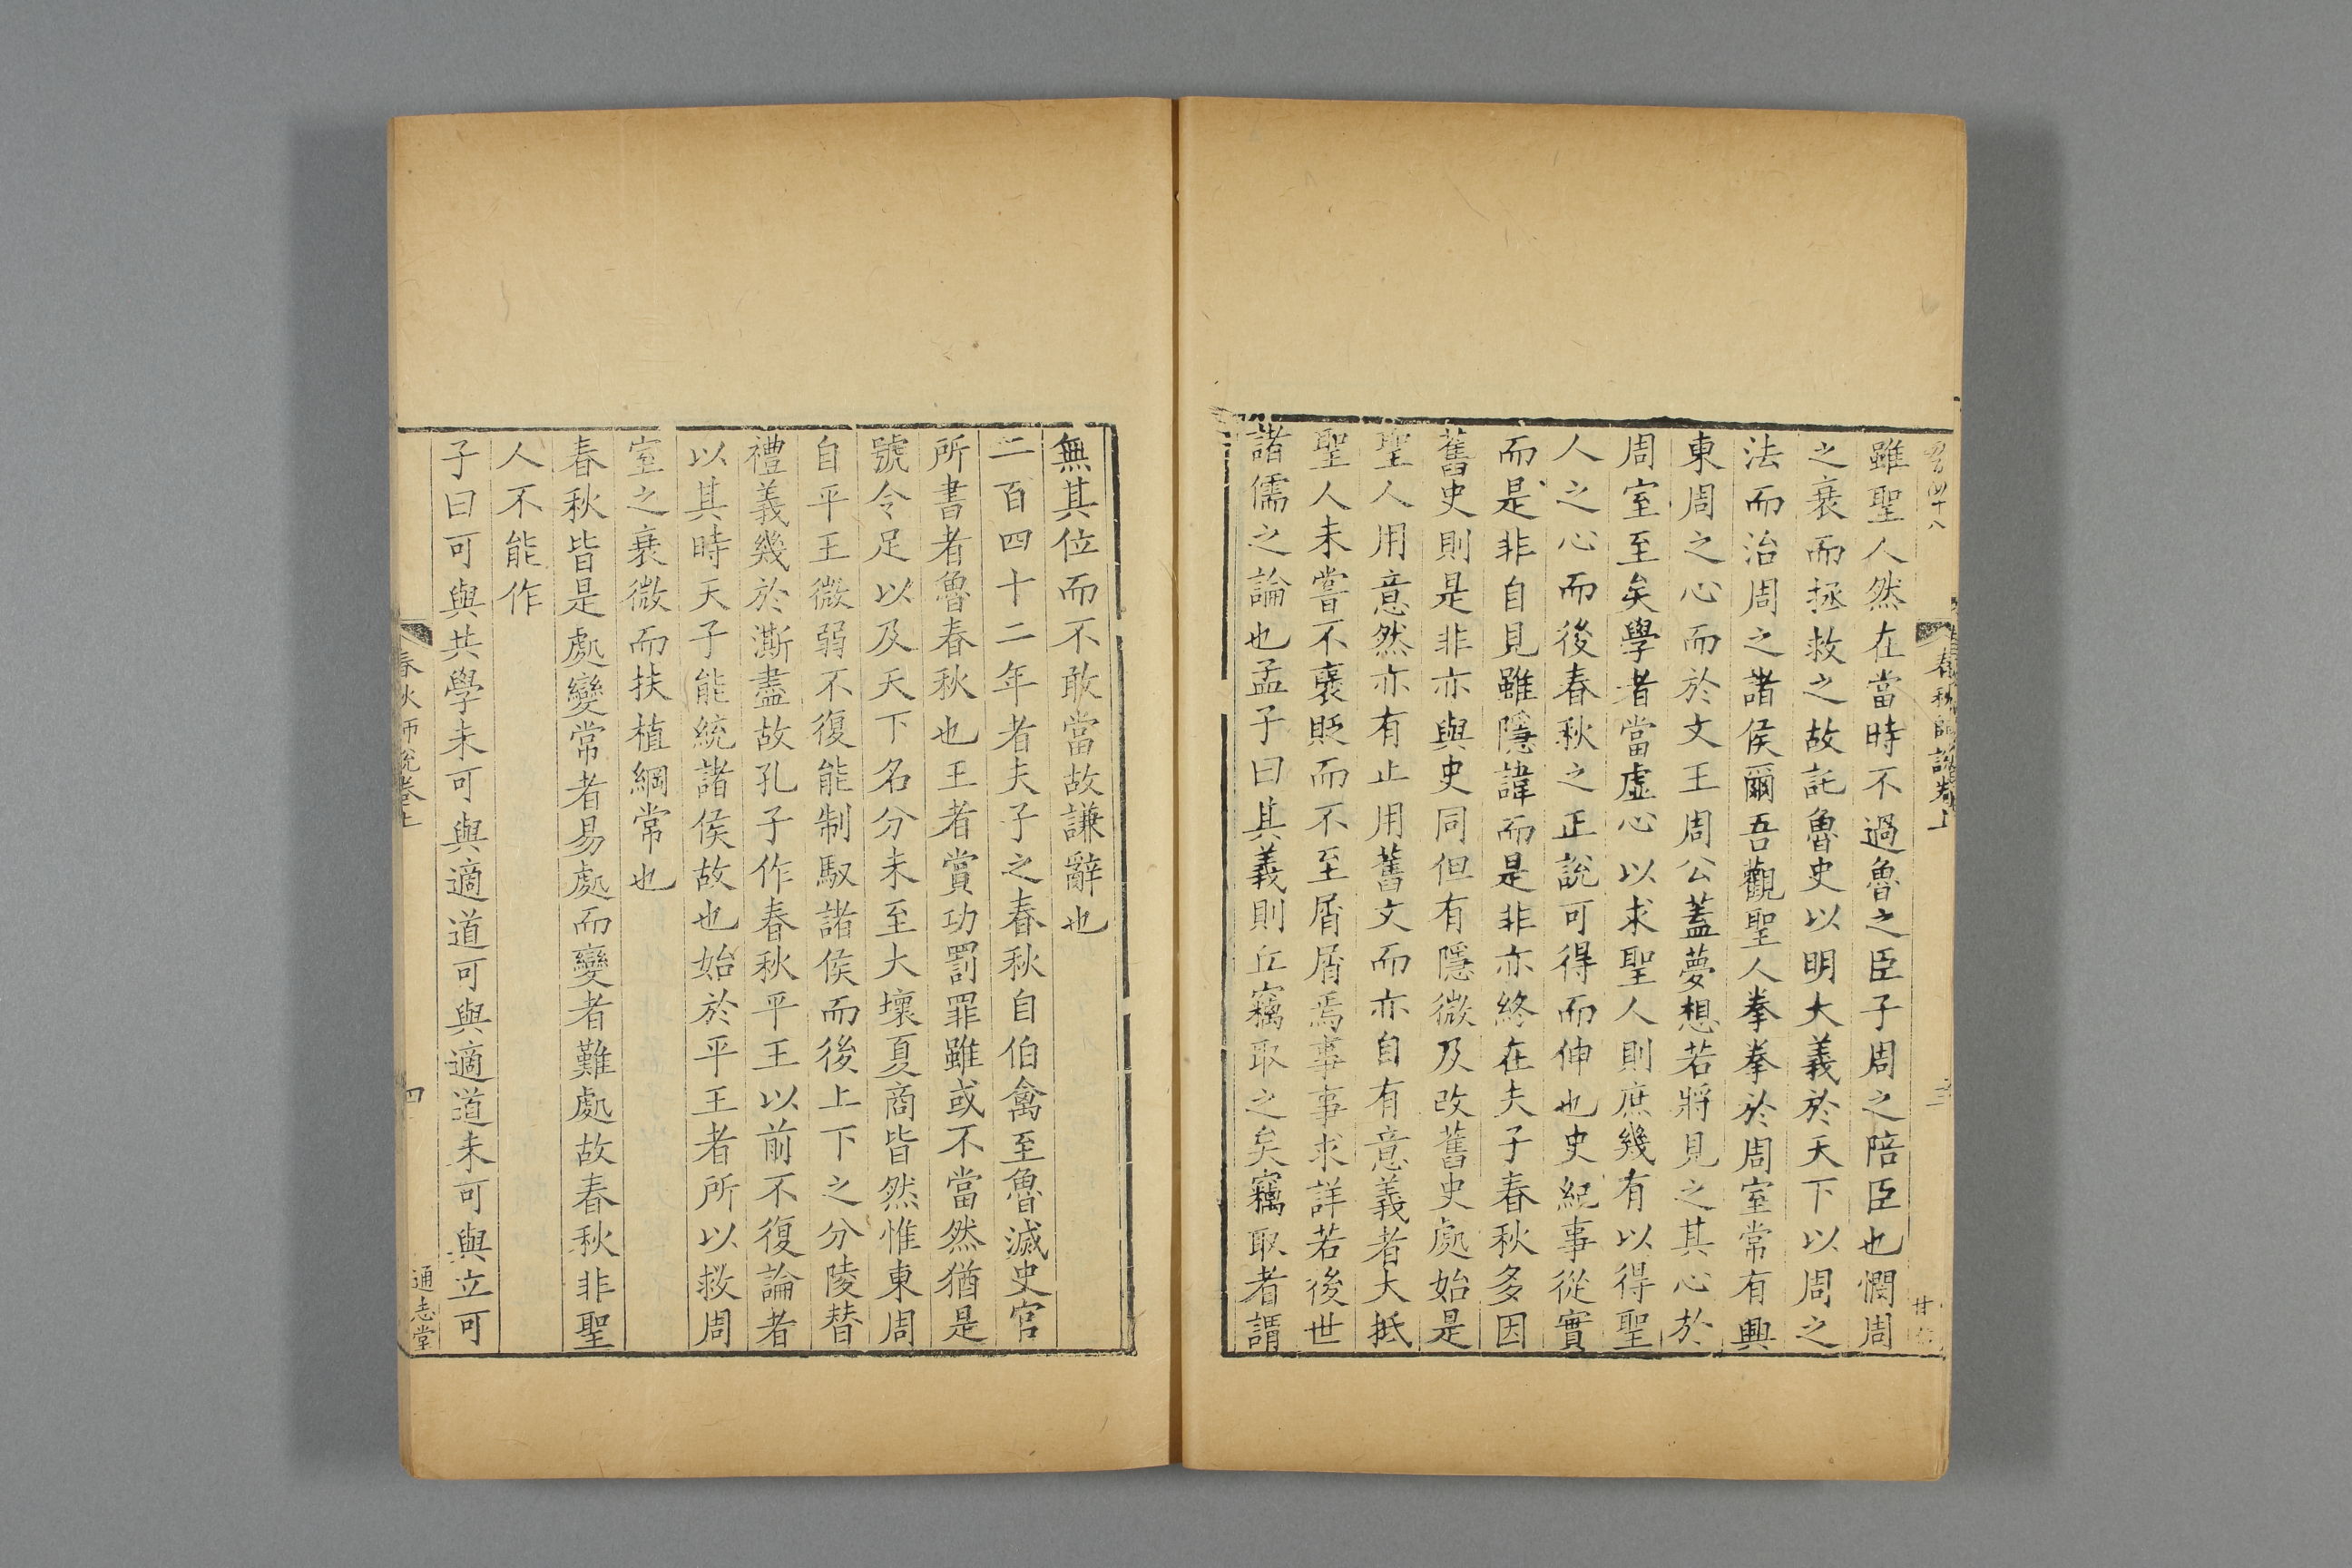 春秋師說卷上
雖聖人然在當時不過魯之臣子周之陪臣也憫周
之衰而拯救之故託魯史以明大義於天下以周之
法而治周之諸侯爾吾觀聖人拳拳於周室常有興
東周之心而於文王周公蓋夢想若將見之其心於
周室至矣學者當虛心以求聖人則庶幾有以得聖
人之心而後春秋之正說可得而伸也史紀事從實
而是非自見雖隱諱而是非亦終在夫子春秋多因
舊史則是非亦與史同但有隱微及改舊史處始是
聖人用意然亦有止用舊文而亦自有意義者大抵
聖人未嘗不襃貶而不至屑屑焉事事求詳若後世
諸儒之論也孟子曰其義則丘竊取之矣竊取者謂
無其位而不敢當故謙辭也
二百四十二年者夫子之春秋自伯禽至魯滅史官
所書者魯春秋也王者賞功罰罪雖或不當然猶是
號令足以及天下名分未至大壞夏商皆然惟東周
自平王微弱不復能制馭諸侯而後上下之分陵替
禮義幾於澌盡故孔子作春秋平王以前不復論者
以其時天子能統諸侯故也始於平王者所以救周
室之衰微而扶植綱常也
春秋皆是處變常者易處而變者難處故春秋非聖
人不能作
子曰可與共學未可與適道可與適道未可與立可
春秋師說卷上
四
通志堂